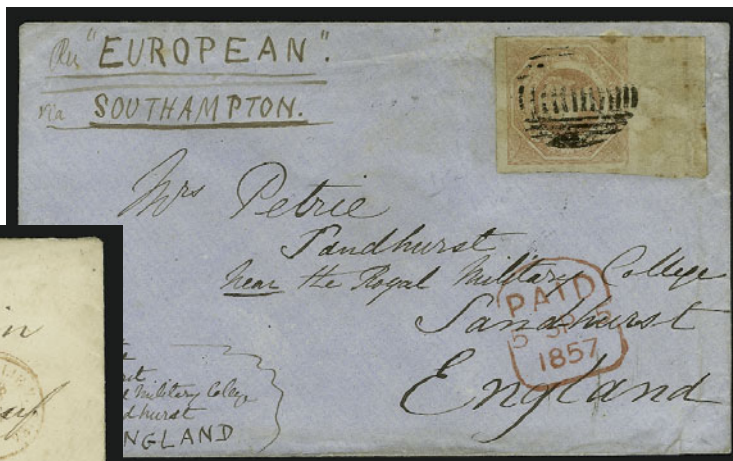 Per "EUROPEAN".
via SOUTHAMPTON.
Mrs Petrie
Sandhurst
Near the Royal Military College
Sandhurst
England
PAID
5 SP 5
1857
Military College
dhurst
NGLAND
in